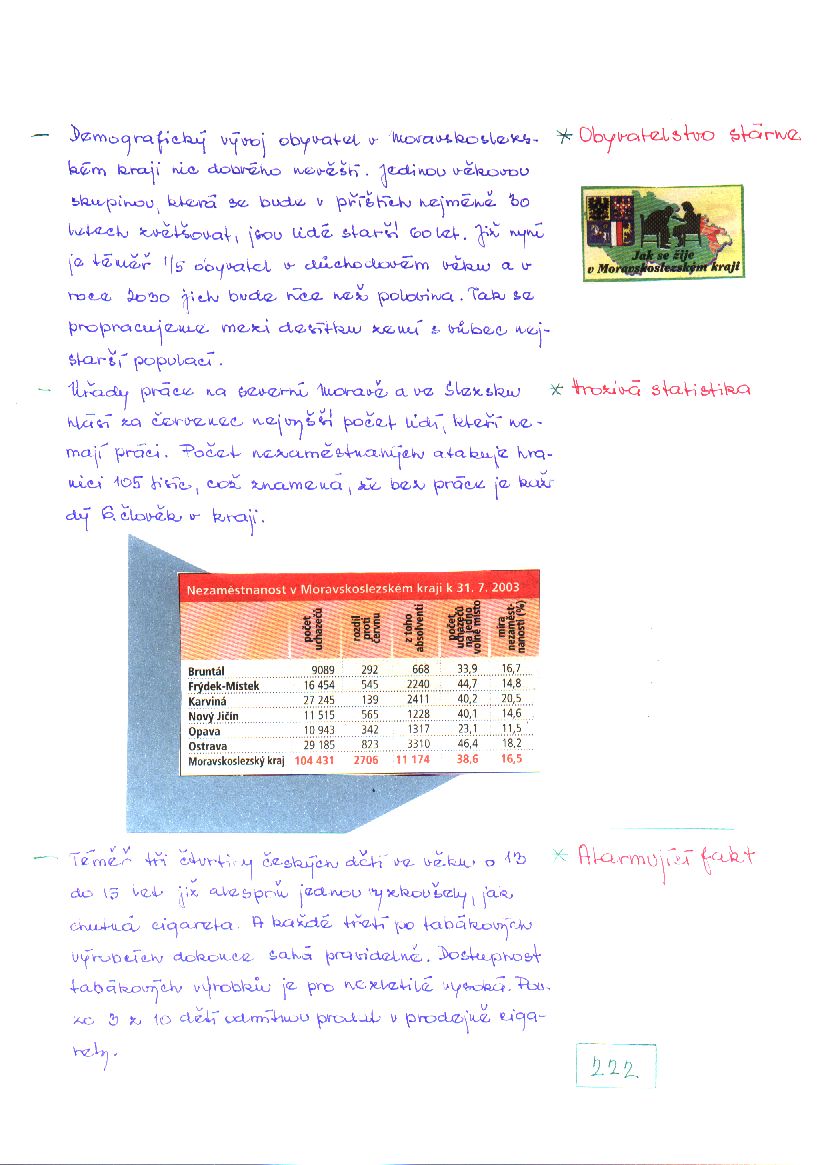 – Demografický vývoj obyvatel v Moravskoslezs-
kém kraji nic dobrého nevěští. Jedinou věkovou
skupinou, která se bude v příštích nejméně 30
letech zvětšovat, jsou lidé starší 60 let. Již nyní
je téměř 1/5 obyvatel v důchodovém věku a v
roce 2030 jich bude více než polovina. Tak se
propracujeme mezi desítku zemí s vůbec nej-
starší populací.
* Obyvatelstvo stárne
Jak se žije
v Moravskoslezským kraji
– Úřady práce na severní Moravě a ve Slezsku
hlásí za červenec nejvyšší počet lidí, kteří ne-
mají práci. Počet nezaměstnaných atakuje hra-
nici 105 tisíc, což znamená, že bez práce je kaž-
dý 6. člověk v kraji.
* Hrozivá statistika
Nezaměstnanost v Moravskoslezském kraji k 31. 7. 2003
počet uchazečů rozdíl proti červnu z toho absolventi počet uchazečů na jedno volné místo míra nezaměst- nanosti (%)
Bruntál 9089 292 668 33,9 16,7
Frýdek-Místek 16 454 545 2240 44,7 14,8
Karviná 27 245 139 2411 40,2 20,5
Nový Jičín 11 515 565 1228 40,1 14,6
Opava 10 943 342 1317 23,1 11,5
Ostrava 29 185 823 3310 46,4 18,2
Moravskoslezský kraj 104 431 2706 11 174 38,6 16,5
– Téměř tři čtvrtiny českých dětí ve věku o 13
do 15 let již alespoň jednou vyzkoušely, jak
chutná cigareta. A každé třetí po tabákových
výrobcích dokonce sahá pravidelně. Dostupnost
tabákových výrobků je pro nezletilé vysoká. Pou-
ze 3 z 10 dětí odmítnou prodat v prodejně ciga-
rety.
* Alarmující fakt
222.